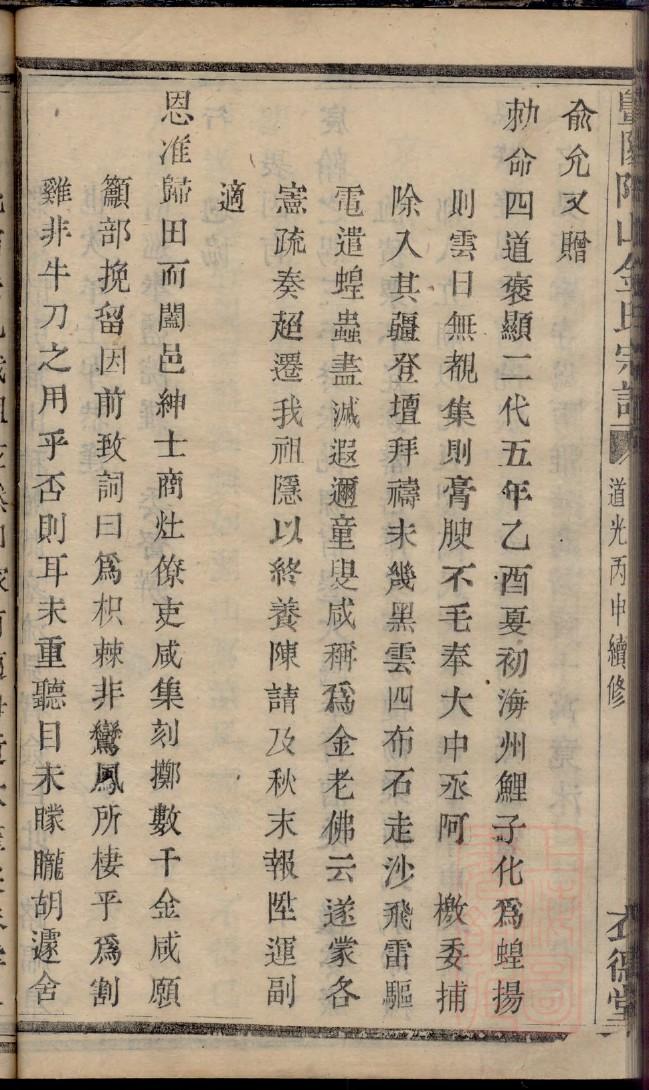 暨陽陶山金氏宗譜 道光丙申續修
衣德堂
俞允又贈
勅命四道褒顯二代五年乙酉夏初海州鯉子化爲蝗揚
則雲日無覩集則膏腴不毛奉大中丞阿 檄委捕
除入其疆登壇拜禱未幾黑雲四布石走沙飛雷驅
電遣蝗蟲盡滅遐邇童叟咸稱爲金老佛云遂蒙各
憲疏奏超遷我祖隱以終養陳請及秋末報陞運副
適
恩准歸田而闔邑紳士商灶僚吏咸集刻擲數千金咸願
籲部挽留因前致詞曰爲枳棘非鸞鳳所棲乎爲割
雞非牛刀之用乎否則耳未重聽目未矇矓胡遽舍